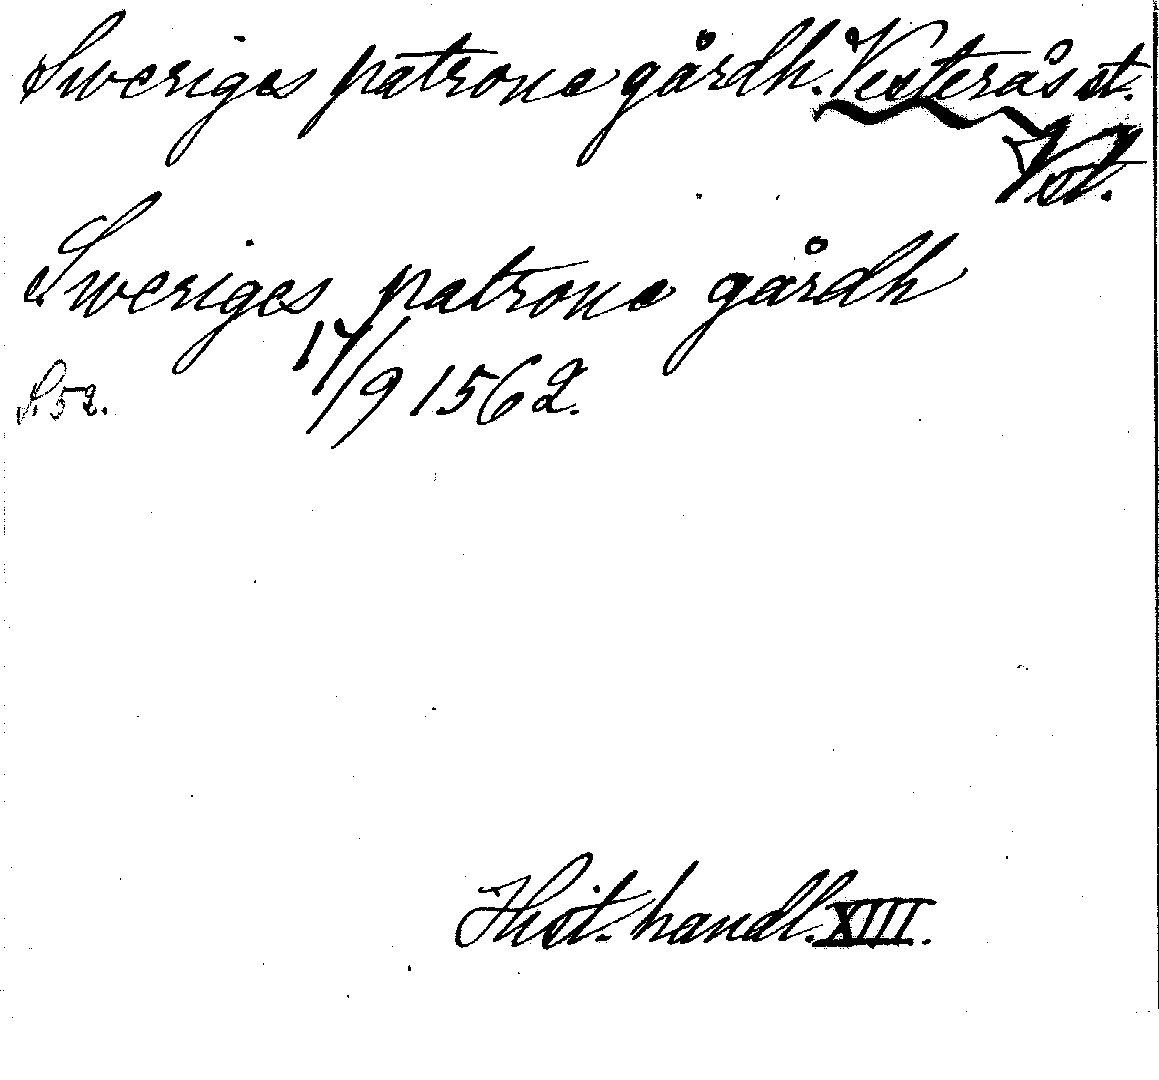 Sweriges patrone gårdh. Vesterås st.
Vst.
Sweriges patrone gårdh
17/9 1562.
S. 52.
Hist. handl. XIII.